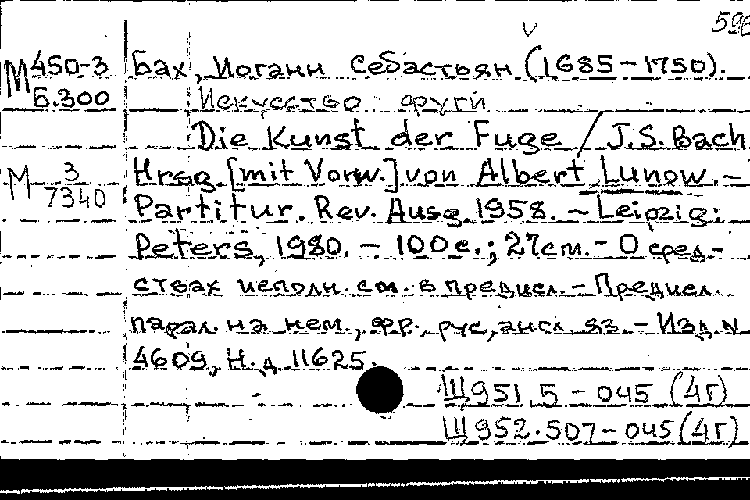 М 450-3 Бах, Иоганн Себастьян (1685-1750).
Б.300 Искусство фуги
Die Kunst der Fuge / J.S. Bach
М 3/7340 Hrsg. [mit Vorw.] von Albert Lunow. –
Partitur. Rev. Ausg. 1958. – Leipzig:
Peters, 1980. – 100 с.; 27см. – О сред-
ствах исполн. см. в предисл. – Предисл.
парал. на нем., фр., рус, англ яз. – Изд. N
4609, Н.д. 11625.
Щ951.5-045 (4Г)
Щ952.507-045 (4Г)